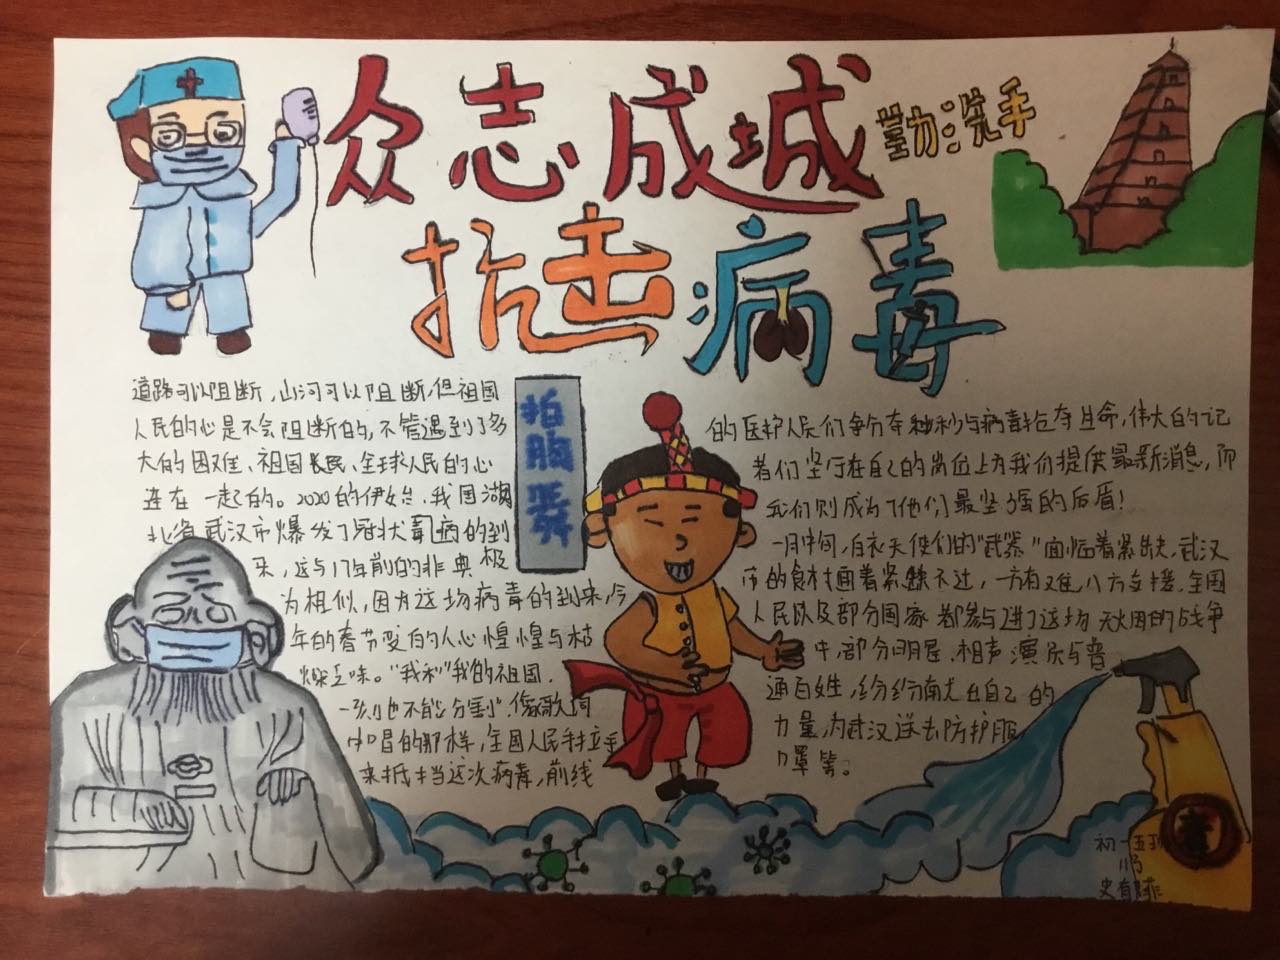 众志成城
勤洗手
抗击病毒
道路可以阻断，山河可以阻断，但祖国
人民的心是不会阻断的，不管遇到了多
大的困难、祖国人民、全球人民的心
连在一起的。2020的伊始、我国湖
北省武汉市爆发了冠状毒病的到
来，这与17年前的非典极
为相似，因为这场病毒的到来，今
年的春节变的人心惶惶与枯
燥乏味。“我和我的祖国，
一刻也不能分割”，像歌词
中唱的那样，全国人民手拉手
来抵挡这次病毒，前线
拍胸舞
的医护人员们争分夺秒与病毒抢夺生命，伟大的记
者们坚守在自己的岗位上为我们提供最新消息，而
我们则成为了他们最坚强的后盾！
一月中旬，白衣天使们的“武器”面临着紧缺，武汉
市的食材面着紧缺不过，一方有难，八方支援，全国
人民以及部分国家都参与进了这场无烟的战争
中，部分明星、相声演员与普
通百姓，纷纷献出自己的
力量，为武汉送去防护服，
口罩等。
毒
初一五班
史有菲